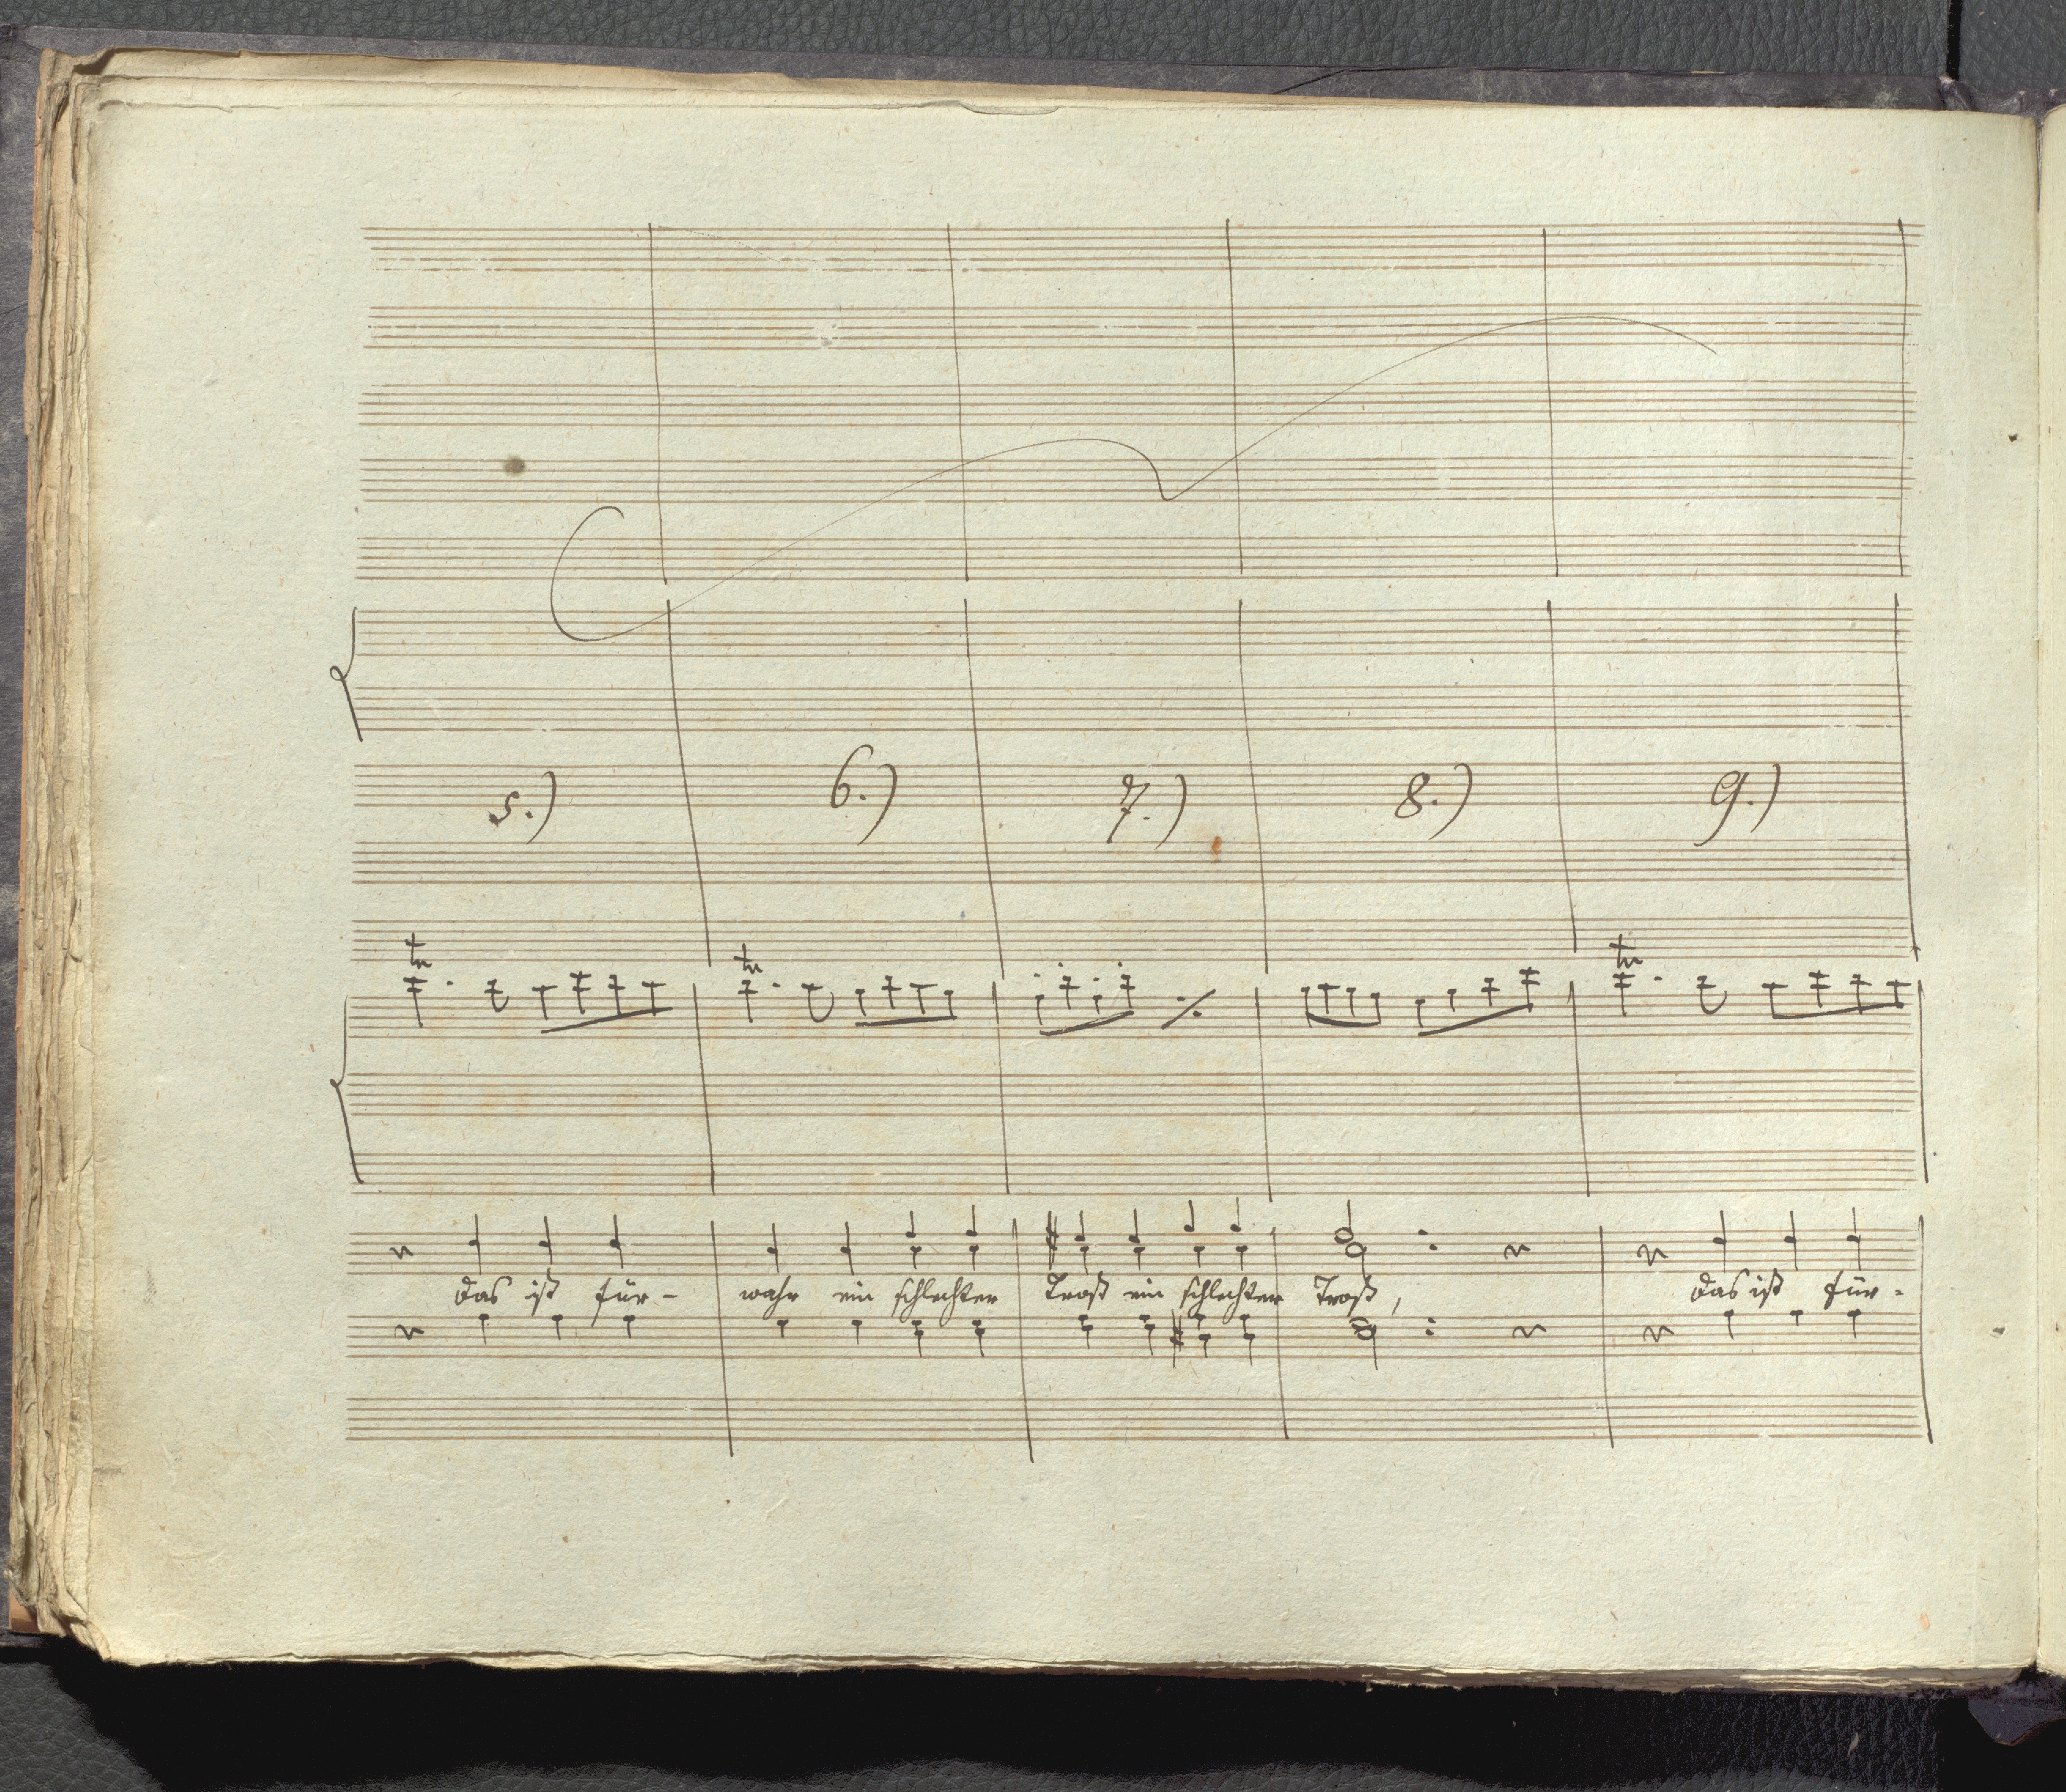 5.) 6.) 7.) 8.) 9.)
tr tr tr
das ist für- wahr ein schlechter Trost ein schlechter Trost, das ist für-